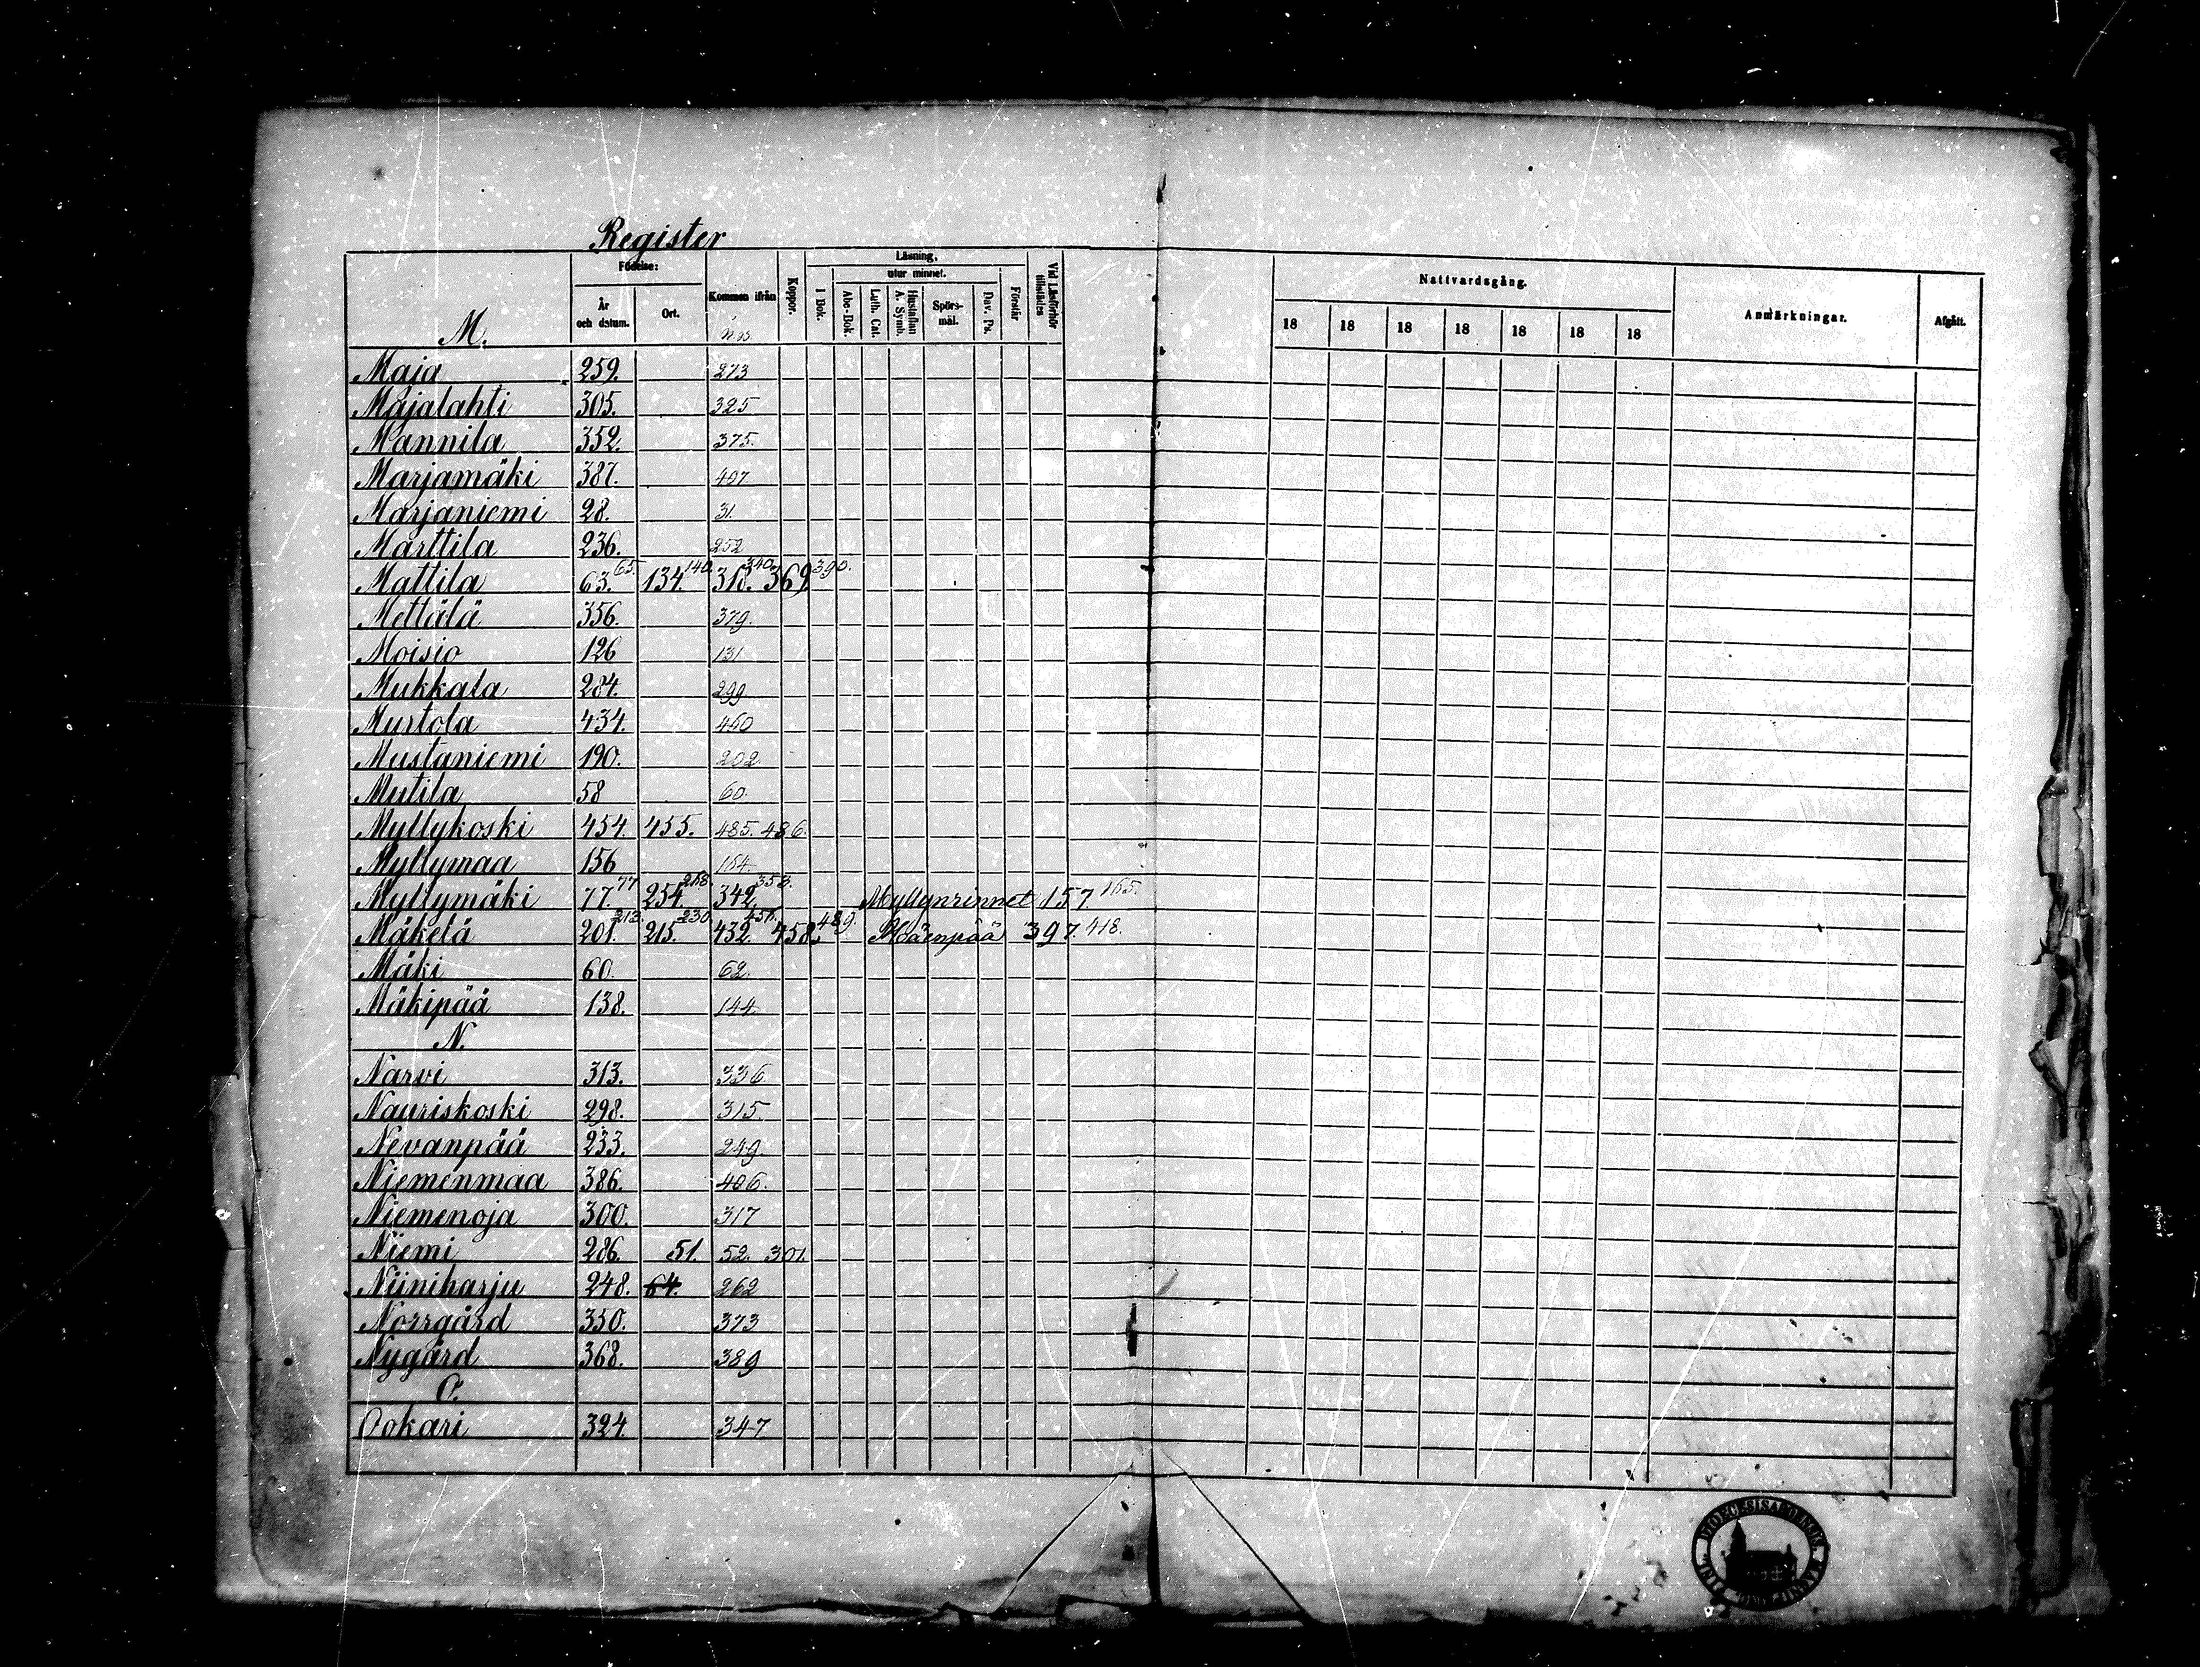 Register
Födelse:
Läsning,
utur minnet.
År och datum.
Ort.
Kommen ifrån
Koppor.
I Bok.
Abc-Bok.
Luth. Cat.
Hustaflan A. Symb.
Spörs-mål.
Dav. Ps.
Förstår
Vid Läsförhör tillstädes
Nattvardsgång.
18 18 18 18 18 18 18
Anmärkningar.
Afgått.
M.
Maja 259. 273
Majalahti 305. 325
Mannila 352. 375.
Marjamäki 387. 407
Marjaniemi 28. 31.
Marttila 236. 252
Mattila 63. 65. 134. 140. 318. 340. 369. 390.
Mettälä 356. 379.
Moisio 126 131
Mukkala 284. 299
Murtola 434. 460
Mustaniemi 190. 202
Mutila 58 60.
Myllykoski 454. 455. 485. 486.
Myllymaa 156 164.
Myllymäki 77. 77 254. 268. 342. 358. Myllynrinnet 157 165.
Mäkelä 201. 213. 215. 230. 432. 457. 458. 489. Mäenpää 397. 418.
Mäki 60. 62.
Mäkipää 138. 144.
N.
Narvi 313. 336.
Nauriskoski 298. 315.
Nevanpää 233. 249.
Niemenmaa 386. 406.
Niemenoja 300. 317
Niemi 286. 51. 52. 301.
Niiniharju 248. 64. 262
Norrgård 350. 373
Nygård 368. 389
O.
Ookari 324. 347